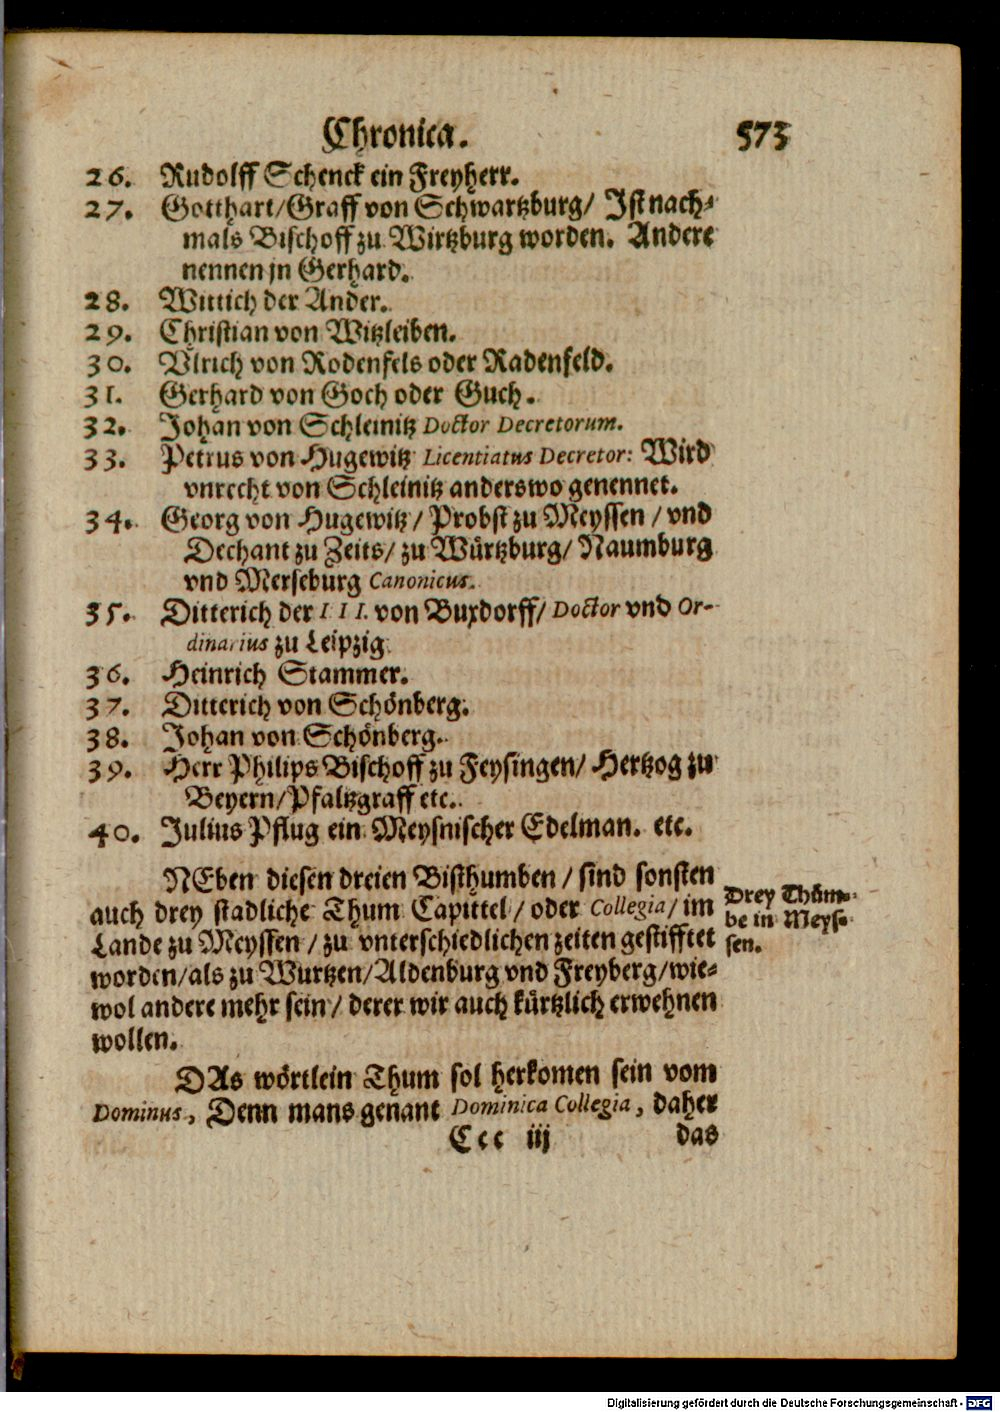 Chronica. 573
26. Rudolff Schenck ein Freyherr.
27. Gotthart/Graff von Schwartzburg/ Ist nach⸗
mals Bischoff zu Wirtzburg worden. Andere
nennen jn Gerhard.
28. Wittich der Ander.
29. Christian von Witzleiben.
30. Vlrich von Rodenfels oder Radenfeld.
31. Gerhard von Goch oder Guch.
32. Johan von Schleinitz Doctor Decretorum.
33. Petrus von Hugewitz Licentiatus Decretor: Wird
vnrecht von Schleinitz anderswo genennet.
34. Georg von Hugewitz/ Probst zu Meyssen/ vnd
Dechant zu Zeits/ zu Würtzburg/ Naumburg
vnd Merseburg Canonicus.
35. Ditterich der III. von Buxdorff/ Doctor vnd Or-
dinarius zu Leipzig.
36. Heinrich Stammer.
37. Ditterich von Schönberg.
38. Johan von Schönberg.
39. Herr Philips Bischoff zu Feysingen/ Hertzog zu
Beyern/Pfaltzgraff etc.
40. Julius Pflug ein Meysnischer Edelman. etc.
NEben diesen dreien Bisthumben/ sind sonsten
auch drey stadliche Thum Capittel/ oder Collegia/ im
Lande zu Meyssen/ zu vnterschiedlichen zeiten gestifftet
worden/als zu Wurtzen/Aldenburg vnd Freyberg/wie⸗
wol andere mehr sein/ derer wir auch kürtzlich erwehnen
wollen.
Drey Thüm⸗
be in Meys⸗
sen.
DAs wörtlein Thum sol herkomen sein vom
Dominus, Denn mans genant Dominica Collegia, daher
Ccc iij das
Digitalisierung gefördert durch die Deutsche Forschungsgemeinschaft - DFG